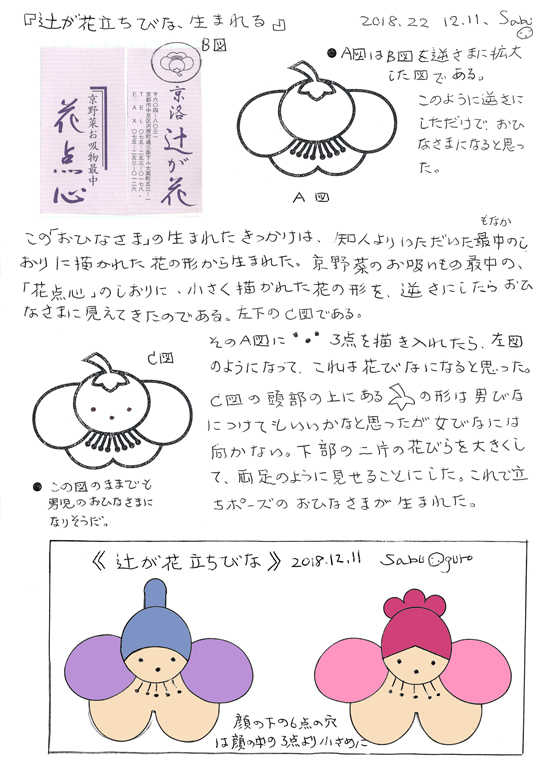 『辻が花立ちびな、生まれる』
2018.22 12.11、Sabu
B図
京野菜お吸物最中
花点心
京洛 辻が花
〒六〇四-八〇三一
TEL〇七五-二五三-〇一七八
FAX〇七五-二五三-〇一二六
●A図はB図を逆さまに拡大
した図である。
このように逆さに
しただけで、おひ
なさまになると思っ
た。
A図
もなか
この「おひなさま」の生まれたきっかけは、知人よりいただいた最中のし
おりに描かれた花の形から生まれた。京野菜のお吸いもの最中の、
「花点心」のしおりに、小さく描かれた花の形を、逆さにしたらおひ
なさまに見えてきたのである。左下のC図である。
C図
そのA図に 3点を描き入れたら、左図
のようになって、これは花びなになると思った。
C図の頭部の上にある の形は男びな
につけてもいいかなと思ったが女びなには
向かない。下部の二片の花びらを大きくし
て、両足のように見せることにした。これで立
ちポーズのおひなさまが生まれた。
●この図のままでも
男児のおひなさまに
なりそうだ。
《辻が花立ちびな》2018.12.11 Sabu Oguro
顔の下の6点の穴
は顔の中の3点より小さめに